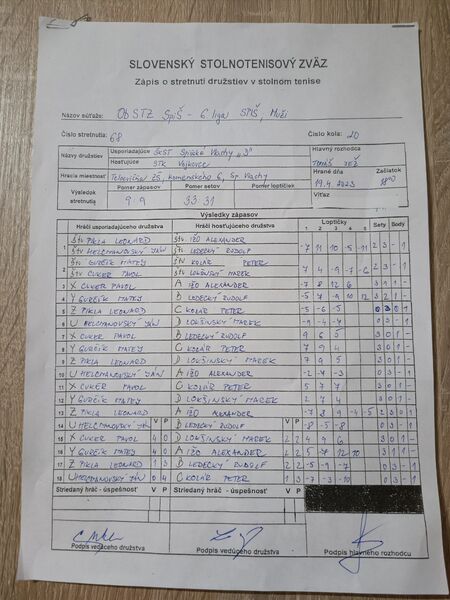 SLOVENSKÝ STOLNOTENISOVÝ ZVÄZ
Zápis o stretnutí družstiev v stolnom tenise
Názov súťaže: ObSTZ Spiš - 6 liga SPIŠ, Muži
Číslo stretnutia: 68 Číslo kola: 20
Názvy družstiev Usporiadajúce Spišské Vlachy "D" Hlavný rozhodca
Hosťujúce STK Vojkovce
Hracia miestnosť Telocvičňa ZŠ, Komenského 6, Sp. Vlachy Hrané dňa 19.4.2023 Začiatok
Výsledok stretnutia Pomer zápasov Pomer setov Pomer loptičiek Víťaz
9:9 33:31
Výsledky zápasov
Hráči usporiadajúceho družstva Hráči hosťujúceho družstva Loptičky Sety Body
1 2 3 4 5
1 Štv PIKLA LEONARD Štv IŽO ALEXANDER -7 11 10 -5 -11 2 3 - 1
Štv HELCMANOVSKÝ JÁN Štv LEDECKÝ RUDOLF
2 Štv GURČÍK MATEJ Štv KOLÁR PETER 7 4 -9 -7 -6 2 3 - 1
Štv CUKER PAVOL Štv LOKŠINSKÝ MAREK
3 X CUKER PAVOL A IŽO ALEXANDER -7 8 12 6 3 1 1 -
4 Y GURČÍK MATEJ B LEDECKÝ RUDOLF -5 7 -9 10 12 3 2 1 -
5 Z PIKLA LEONARD C KOLÁR PETER -5 -6 -5 0 3 - 1
6 U HELCMANOVSKÝ JÁN D LOKŠINSKÝ MAREK -9 -4 -7 0 3 - 1
7 X CUKER PAVOL B LEDECKÝ RUDOLF 9 6 5 3 0 1 -
8 Y GURČÍK MATEJ C KOLÁR PETER 7 9 4 3 0 1 -
9 Z PIKLA LEONARD D LOKŠINSKÝ MAREK 7 9 5 3 0 1 -
10 U HELCMANOVSKÝ JÁN A IŽO ALEXANDER -2 -7 -3 0 3 - 1
11 X CUKER PAVOL C KOLÁR PETER 5 7 7 3 0 1 -
12 Y GURČÍK MATEJ D LOKŠINSKÝ MAREK 2 7 4 3 0 1 -
13 Z PIKLA LEONARD A IŽO ALEXANDER -7 8 9 -4 -5 2 3 - 1
14 U HELCMANOVSKÝ JÁN V P B LEDECKÝ RUDOLF V P -8 -5 -8 0 3 - 1
15 X CUKER PAVOL 4 0 D LOKŠINSKÝ MAREK 2 2 4 9 6 3 0 1 -
16 Y GURČÍK MATEJ 4 0 A IŽO ALEXANDER
17 Z PIKLA LEONARD 1 3 B LEDECKÝ RUDOLF 2 2 -5 -9 -7 0 3 - 1
18 U HELCMANOVSKÝ JÁN 0 4 C KOLÁR PETER 1 3 -7 -3 -10 0 3 - 1
Striedaný hráč - úspešnosť V P Striedaný hráč - úspešnosť V P
Podpis vedúceho družstva Podpis vedúceho družstva Podpis hlavného rozhodcu